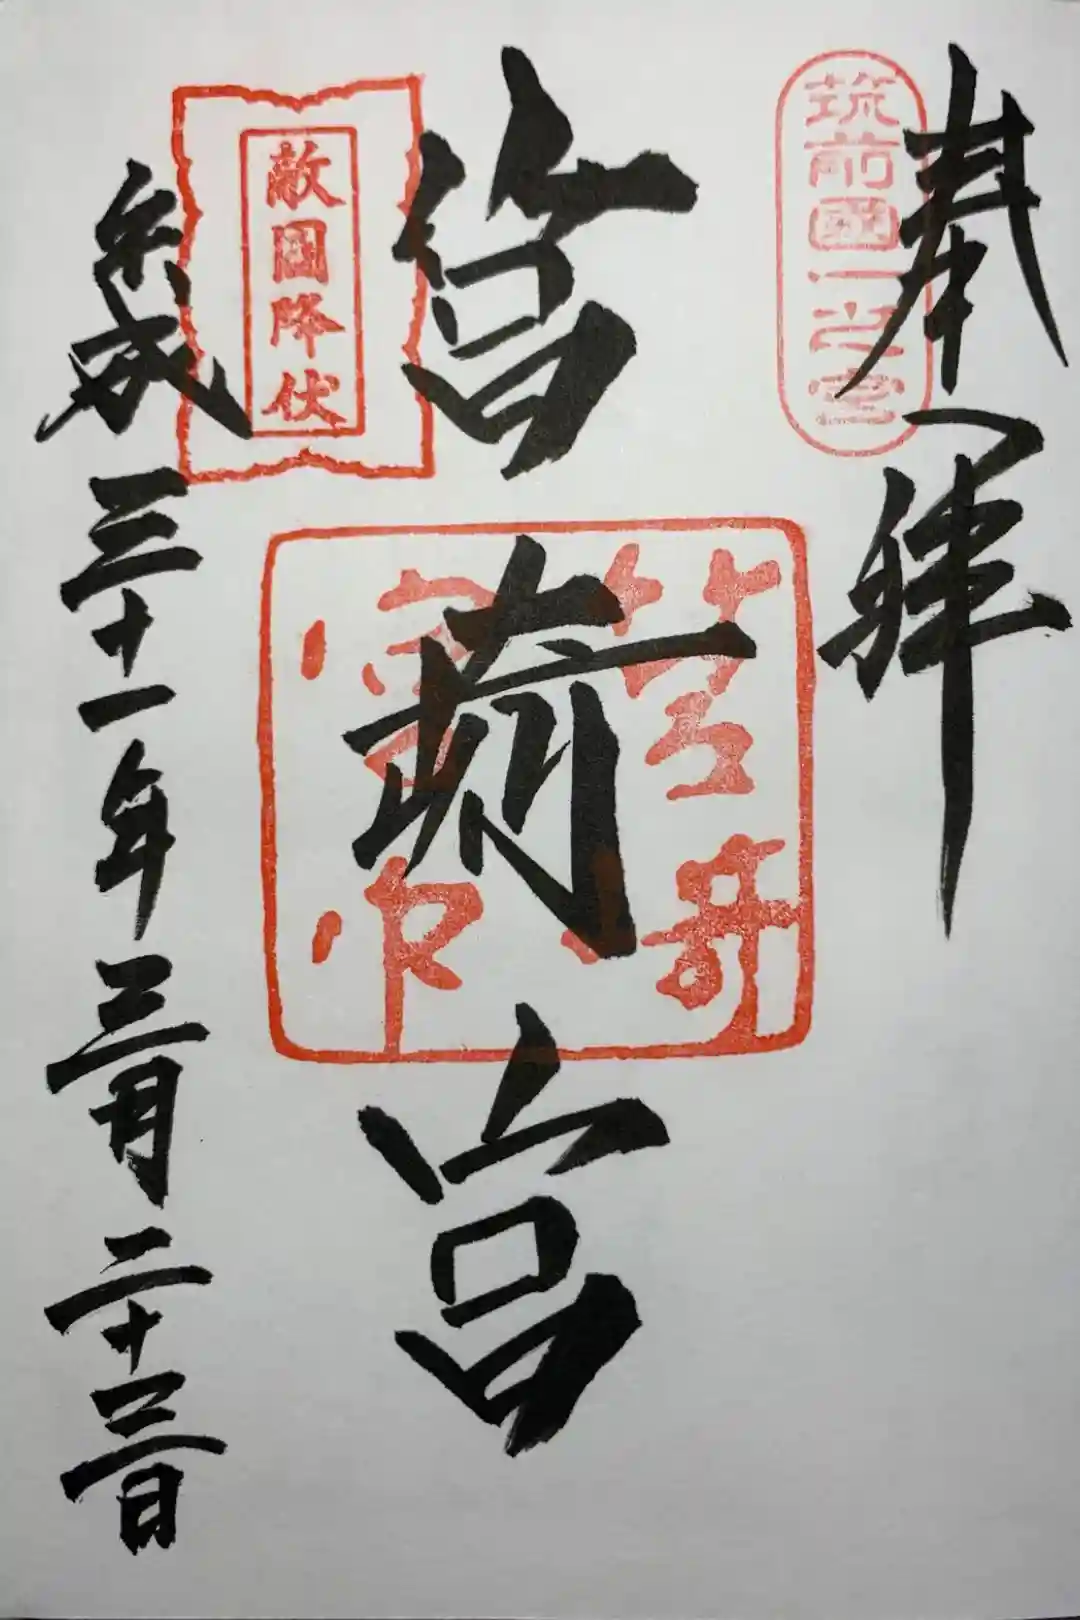 奉拝
筑前國一之宮
筥崎宮
筥崎
宮印
敵國降伏
平成三十一年三月二十三日